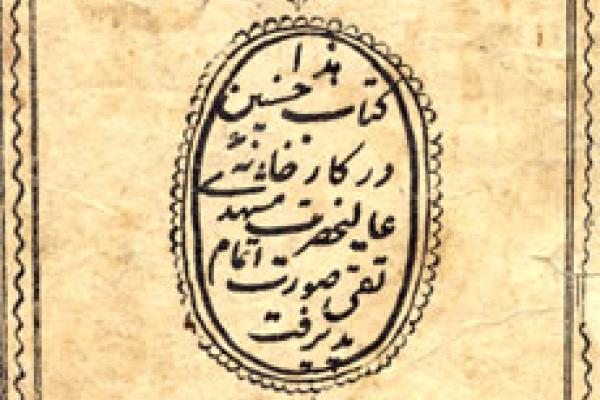 هذا
کتاب حسنین
در کارخانهٔ
عالیحضرت مشهدی
تقی صورت اتمام
پذیرفت